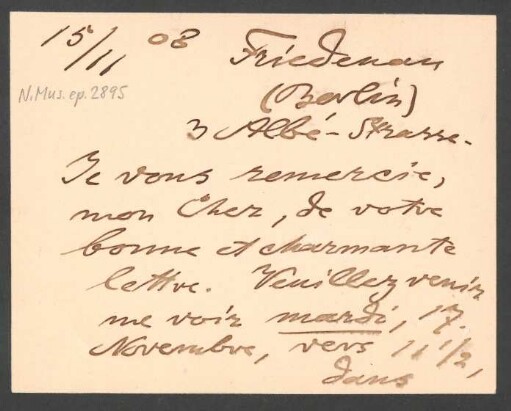 15/11 08 Friedenau
(Berlin)
N.Mus.ep.2895
3 Albé-Strasse.
Je vous remercie,
mon Cher, de votre
bonne et charmante
lettre. Veuillez venir
me voir mardi, 17.
Novembre, vers 11 1/2,
dans